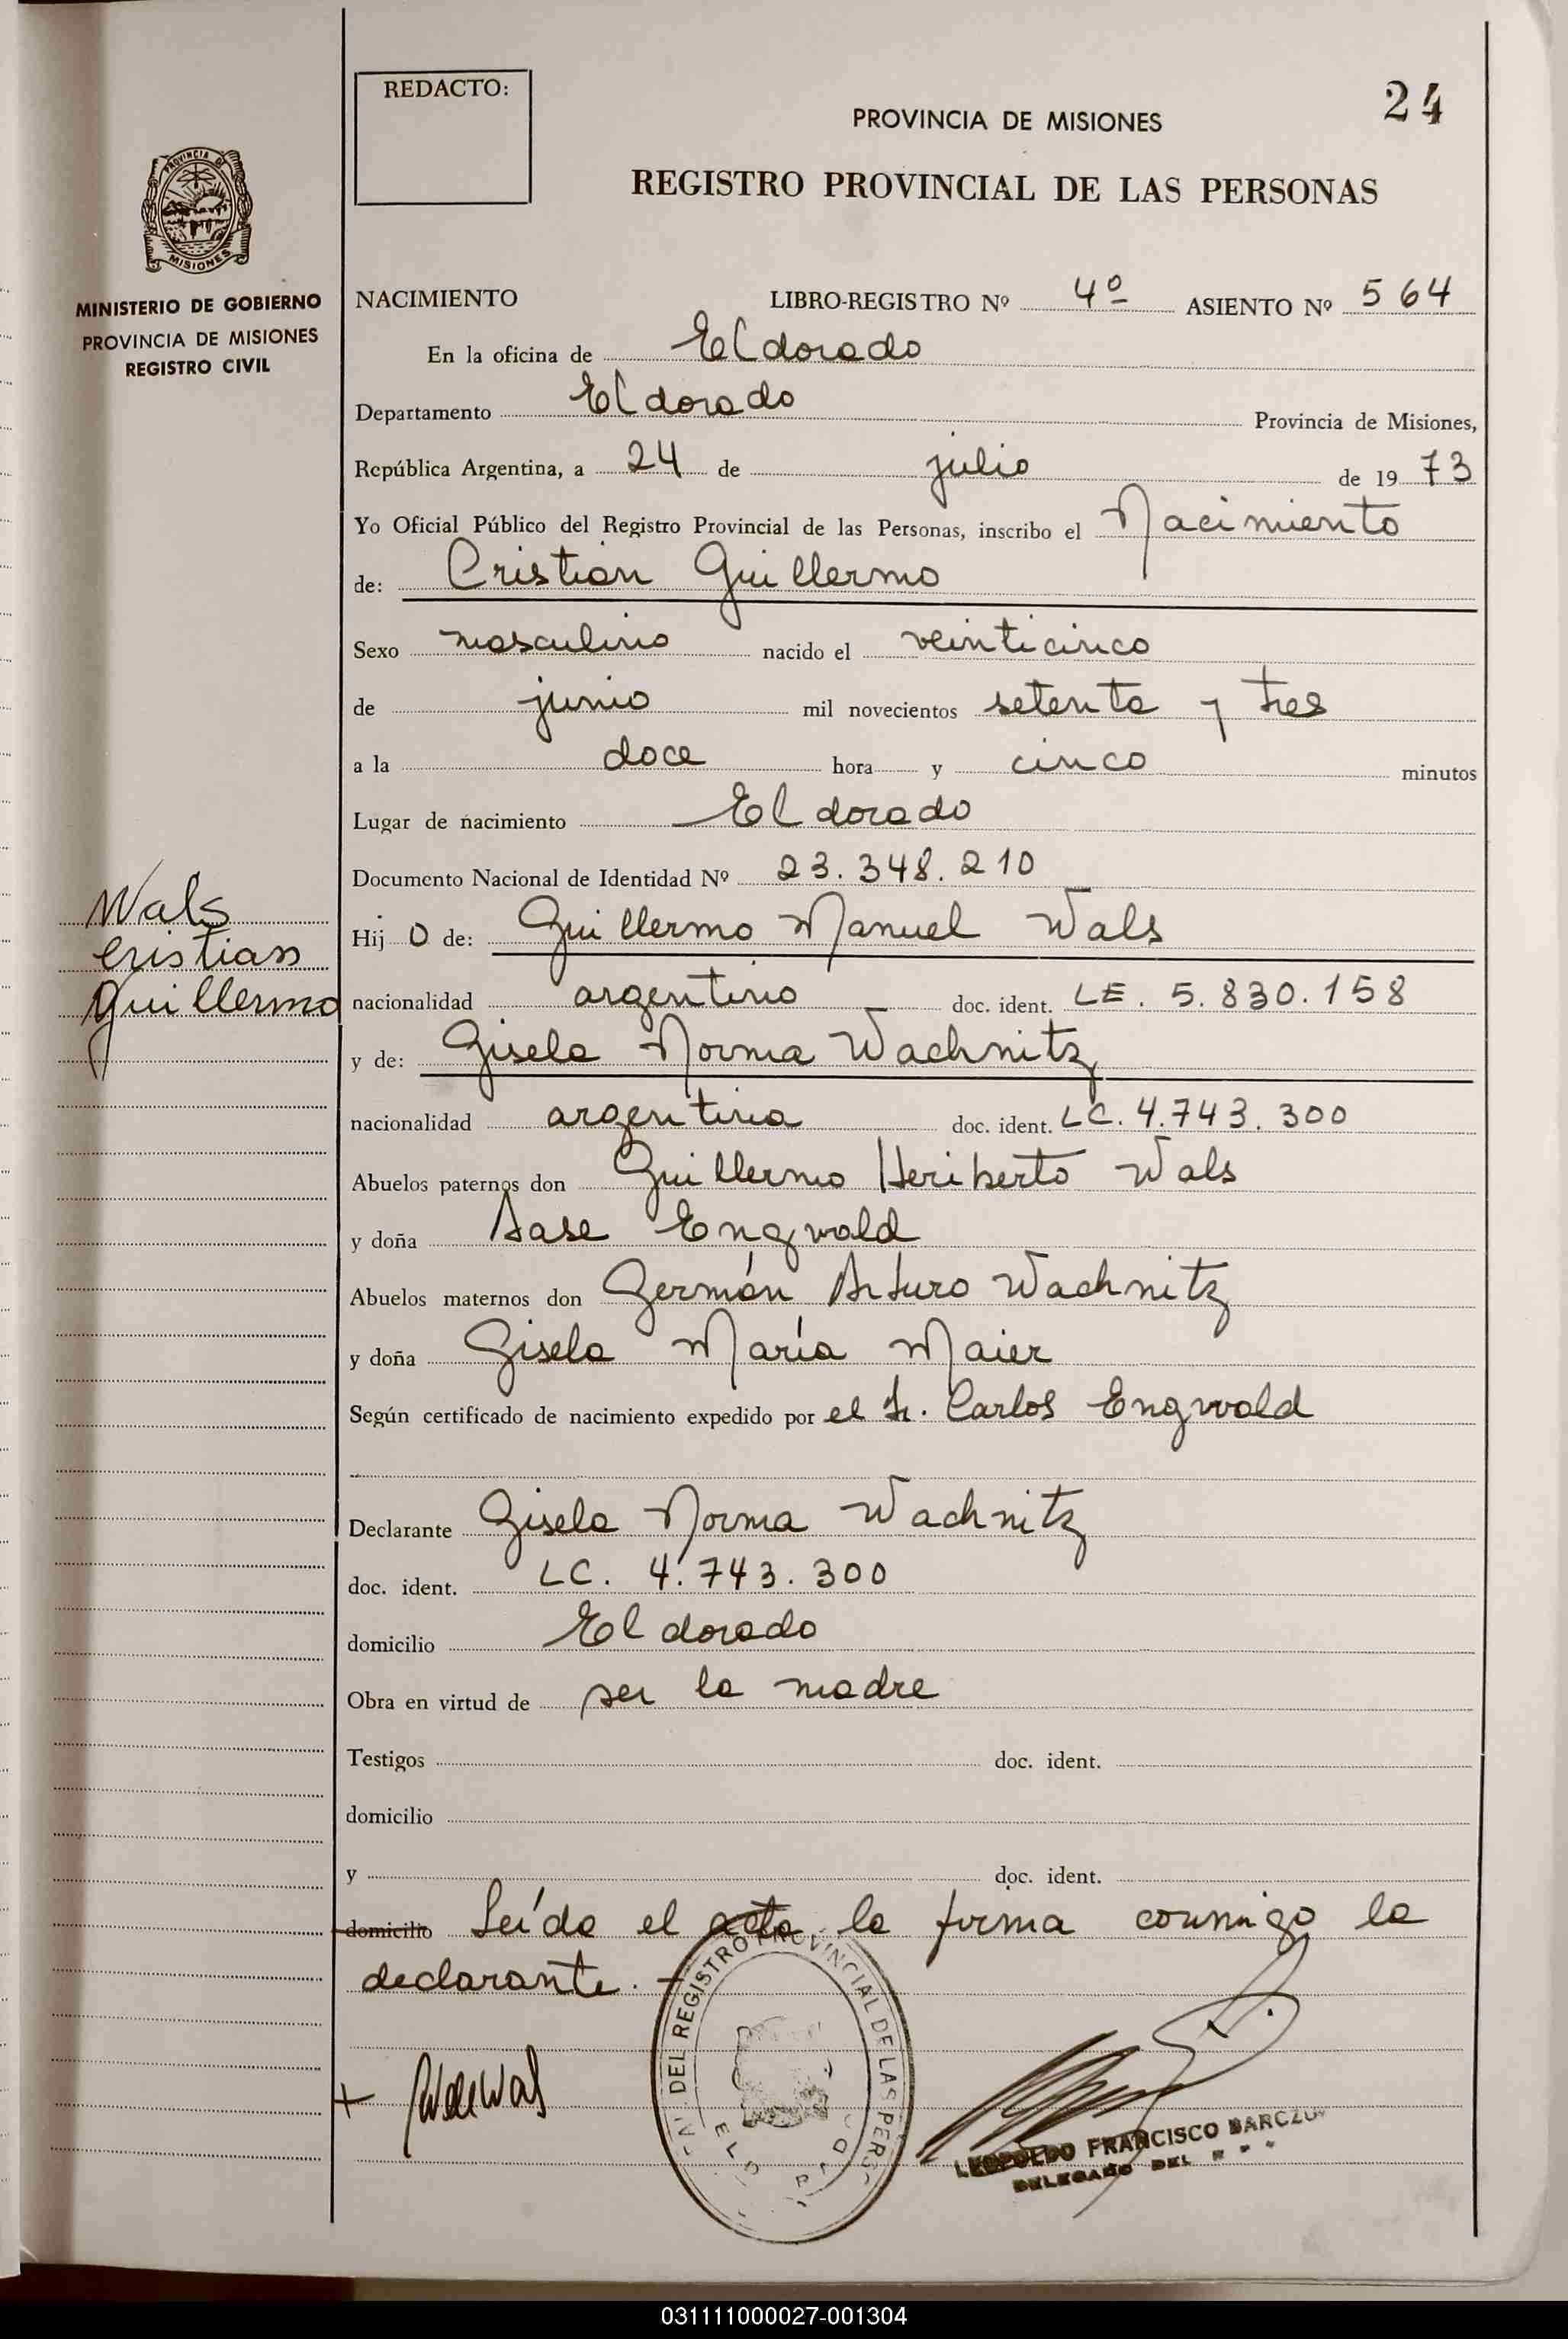 REDACTO:
24
PROVINCIA DE MISIONES
REGISTRO PROVINCIAL DE LAS PERSONAS
PROVINCIA DE
MISIONES
MINISTERIO DE GOBIERNO
PROVINCIA DE MISIONES
REGISTRO CIVIL
NACIMIENTO LIBRO-REGISTRO Nº 4º ASIENTO Nº 564
En la oficina de Eldorado
Departamento Eldorado Provincia de Misiones,
República Argentina, a 24 de julio de 19 73
Yo Oficial Público del Registro Provincial de las Personas, inscribo el Nacimiento
de: Cristian Guillermo
Sexo masculino nacido el veinticinco
de junio mil novecientos setenta y tres
a la doce hora y cinco minutos
Lugar de nacimiento Eldorado
Documento Nacional de Identidad Nº 23.348.210
Wals
Cristian
Guillermo
Hij o de: Guillermo Manuel Wals
nacionalidad argentino doc. ident. LE. 5.830.158
y de: Gisela Norma Wachnitz
nacionalidad argentina doc. ident. LC. 4.743.300
Abuelos paternos don Guillermo Heriberto Wals
y doña Aase Engwald
Abuelos maternos don Germán Arturo Wachnitz
y doña Gisela María Maier
Según certificado de nacimiento expedido por el Dr. Carlos Engwald
Declarante Gisela Norma Wachnitz
doc. ident. LC. 4.743.300
domicilio Eldorado
Obra en virtud de ser la madre
Testigos doc. ident.
domicilio
y doc. ident.
domicilio Leída el acta la firma conmigo la
declarante.-
DEL REGISTRO PROVINCIAL DE LAS PERS
LEOPOLDO FRANCISCO
DELEGADO DEL
031111000027-001304